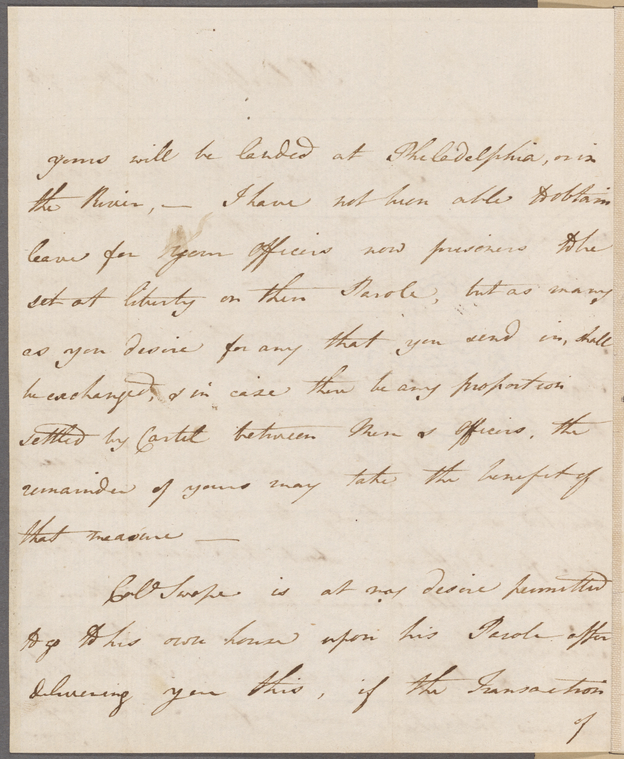 yours will be landed at Philadelphia, or in
the River, — I have not been able to obtain
leave for your Officers now prisoners to be
set at liberty on their Parole, but as many
as you desire for any that you send in, shall
be exchanged, & in case there be any proportion
settled by Cartel between Men & Officers, the
remainder of yours may take the benefit of
that measure —
Colo Swope is at my desire permitted
to go to his own house upon his Parole after
delivering you this, if the Transaction
of